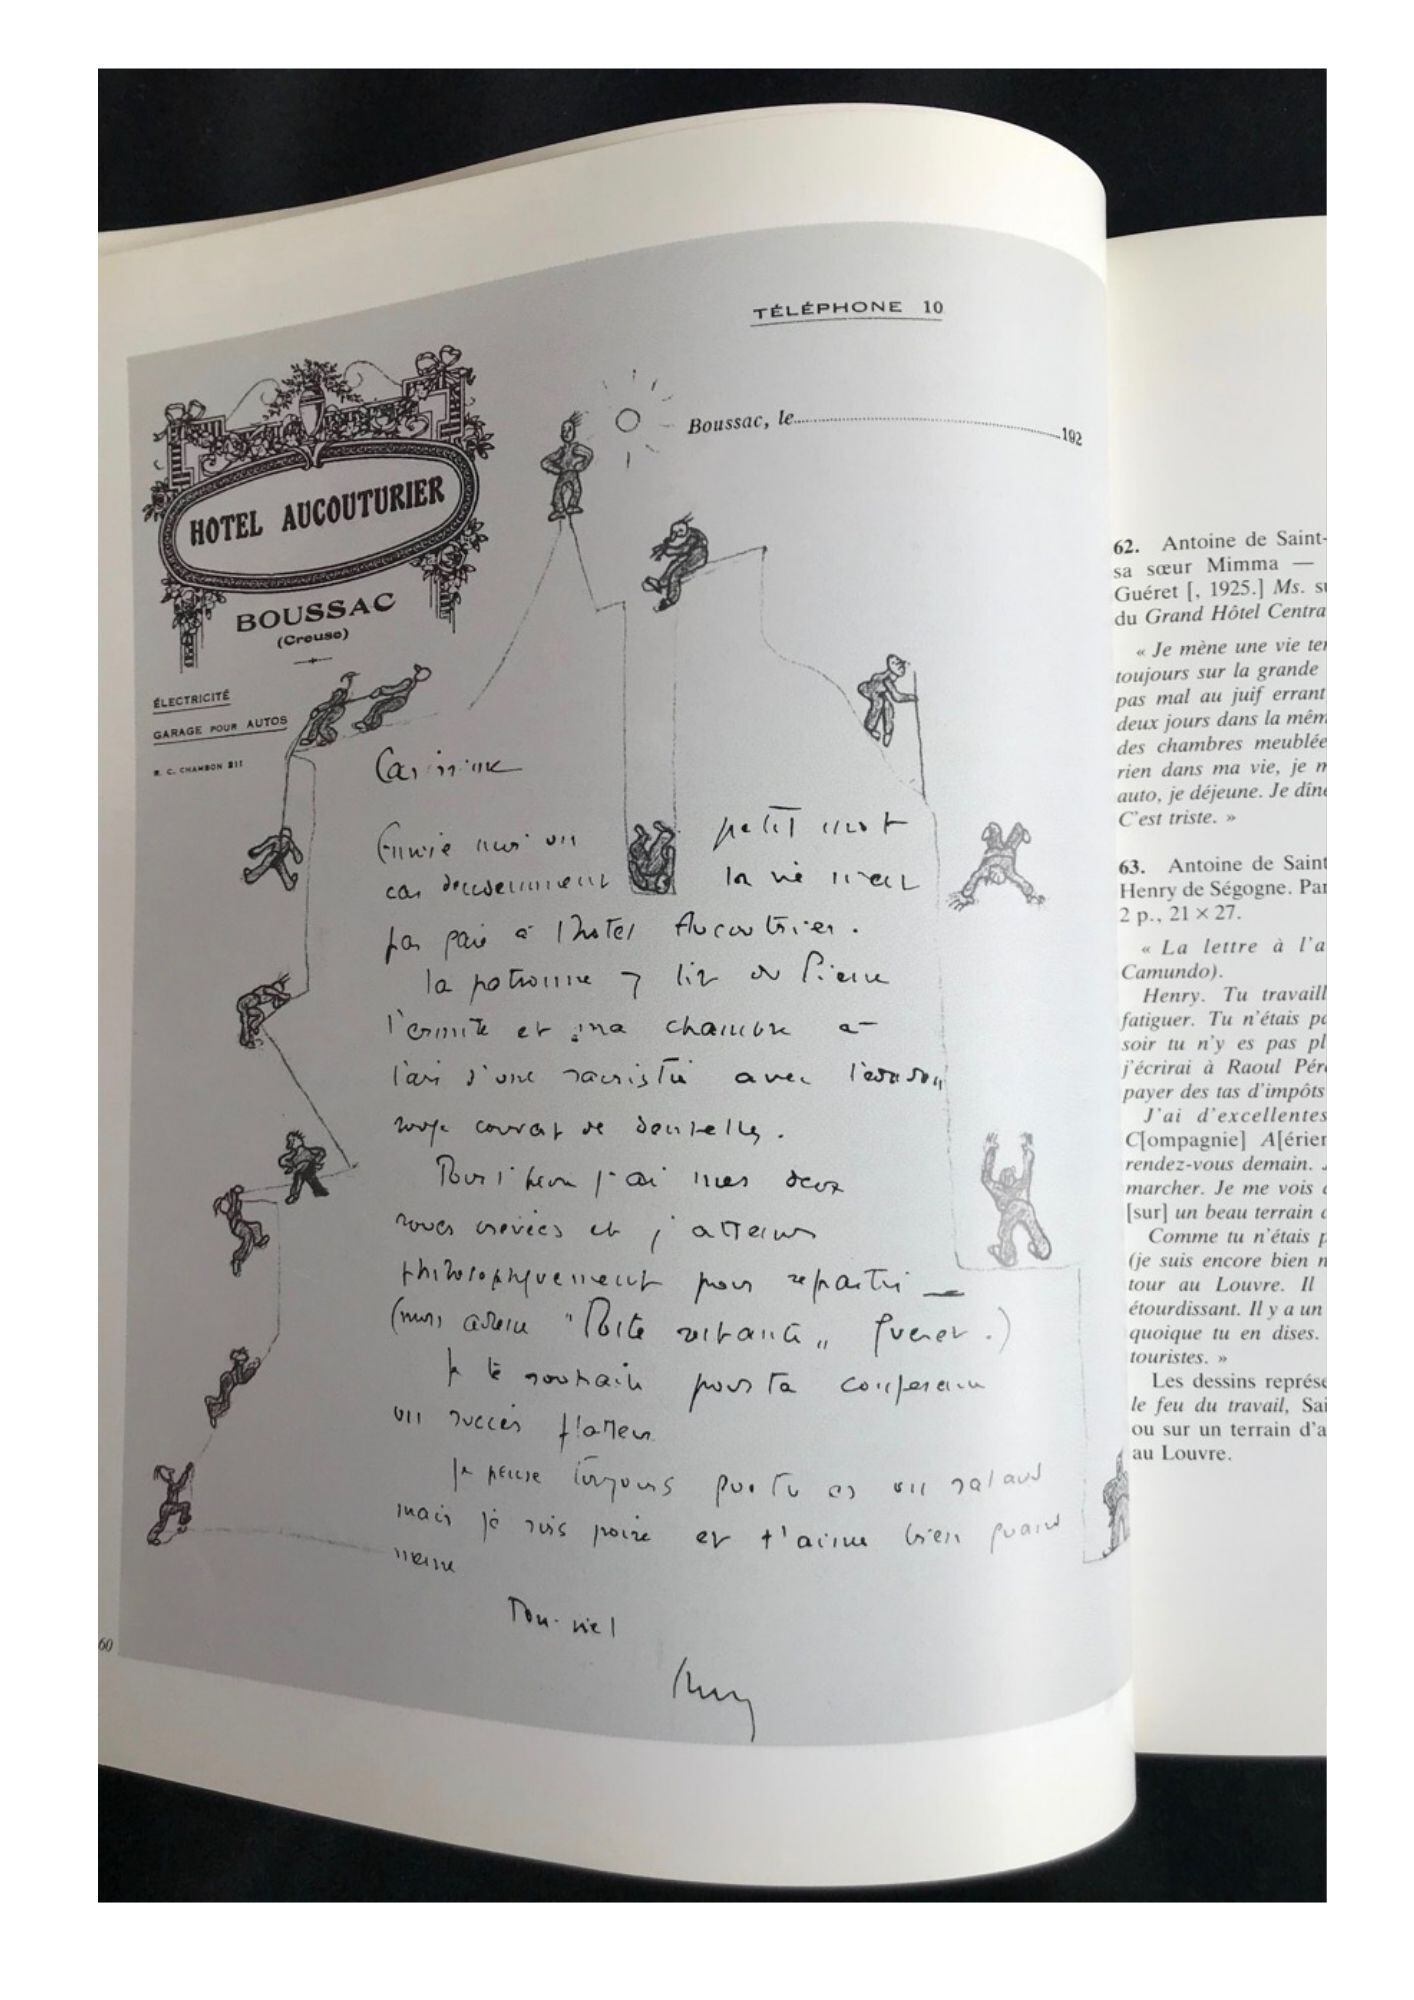 TÉLÉPHONE 10
Boussac, le 192
HOTEL AUCOUTURIER
BOUSSAC
(Creuse)
ÉLECTRICITÉ
GARAGE POUR AUTOS
R. C. CHAMBON 211
Envie moi un petit mot
car décidemment la vie n'est
pas gaie à l'hotel Aucouturier.
la patronne y lit du Pierre
l'ermite et ma chambre a
l'air d'une sacristie avec l'edredon
rouge couvert de dentelles.
Pour l'heure j'ai mes deux
roues crevées et j'attends
philosophiquement pour repartir —
(mon adresse "Poste restante" Gueret.)
Je te souhaite pour ta conference
un succès flatteur
Je pense toujours que tu es un salaud
mais je suis poire et t'aime bien quand
meme
Ton viel
60
62. Antoine de Saint-
sa sœur Mimma —
Guéret [, 1925.] Ms. su
du Grand Hôtel Centra
« Je mène une vie ter
toujours sur la grande
pas mal au juif errant
deux jours dans la mêm
des chambres meublée
rien dans ma vie, je m
auto, je déjeune. Je dîne
C'est triste. »
63. Antoine de Saint
Henry de Ségogne. Par
2 p., 21 × 27.
« La lettre à l'a
Camundo).
Henry. Tu travaill
fatiguer. Tu n'étais pa
soir tu n'y es pas pl
j'écrirai à Raoul Pér
payer des tas d'impôts
J'ai d'excellentes
C[ompagnie] A[érier
rendez-vous demain. J
marcher. Je me vois
[sur] un beau terrain d
Comme tu n'étais p
(je suis encore bien n
tour au Louvre. Il
étourdissant. Il y a un
quoique tu en dises.
touristes. »
Les dessins représe
le feu du travail, Sai
ou sur un terrain d'a
au Louvre.